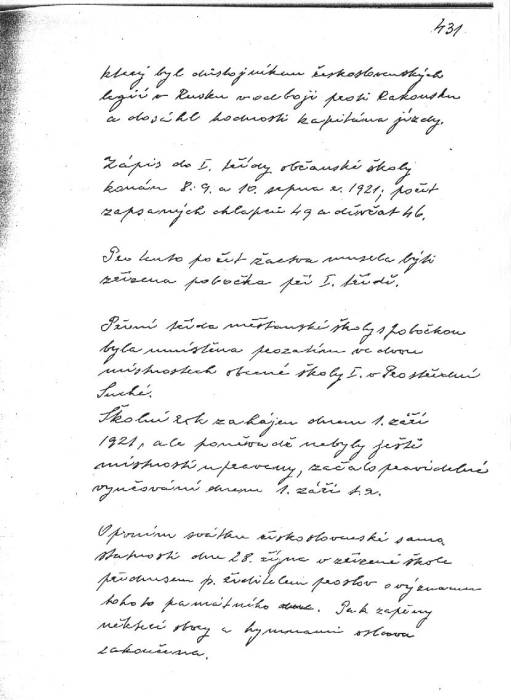 431
který byl důstojníkem československých
legií v Rusku v odboji proti Rakousku
a dosáhl hodnosti kapitána jízdy.
Zápis do I. třídy občanské školy
konán 8. 9. a 10. srpna r. 1921; počet
zapsaných chlapců 49 a děvčat 46.
Pro tento počet žactva musela býti
zřízena pobočka při I. třídě.
První třída měšťanské školy s pobočkou
byla umístěna prozatím ve dvou
místnostech obecné školy I. v Prostřední
Suché.
Školní rok zahájen dnem 1. září
1921, ale poněvadž nebyly ještě
místnosti upraveny, začalo pravidelné
vyučování dnem 1. září t. r.
O prvním svátku československé samo
statnosti dne 28. října v zřízené škole
přednesem p. ředitelem proslov o významu
tohoto památného. Pak zapěny
některé sbory a hymnami oslava
zakončena.